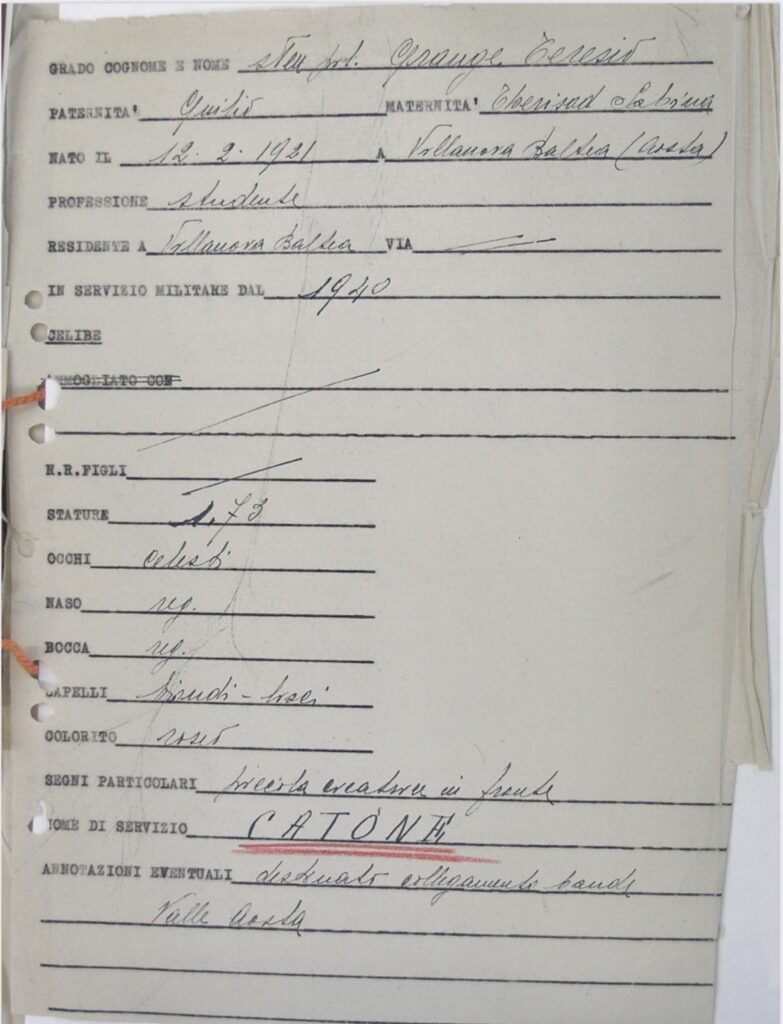 GRADO COGNOME E NOME sten prt. Grange Teresio
PATERNITA' Giulio MATERNITA' Therisod Sabina
NATO IL 12. 2. 1921 A Villanova Baltea (Aosta)
PROFESSIONE studente
RESIDENTE A Villanova Baltea VIA
IN SERVIZIO MILITARE DAL 1940
CELIBE
AMMOGLIATO CON
N.R.FIGLI
STATURE 1.73
OCCHI celesti
NASO reg.
BOCCA reg.
CAPELLI biondi - lisci
COLORITO roseo
SEGNI PARTICOLARI piccola cicatrice in fronte
NOME DI SERVIZIO CATONE
ANNOTAZIONI EVENTUALI destinato collegamento bande
Valle Aosta